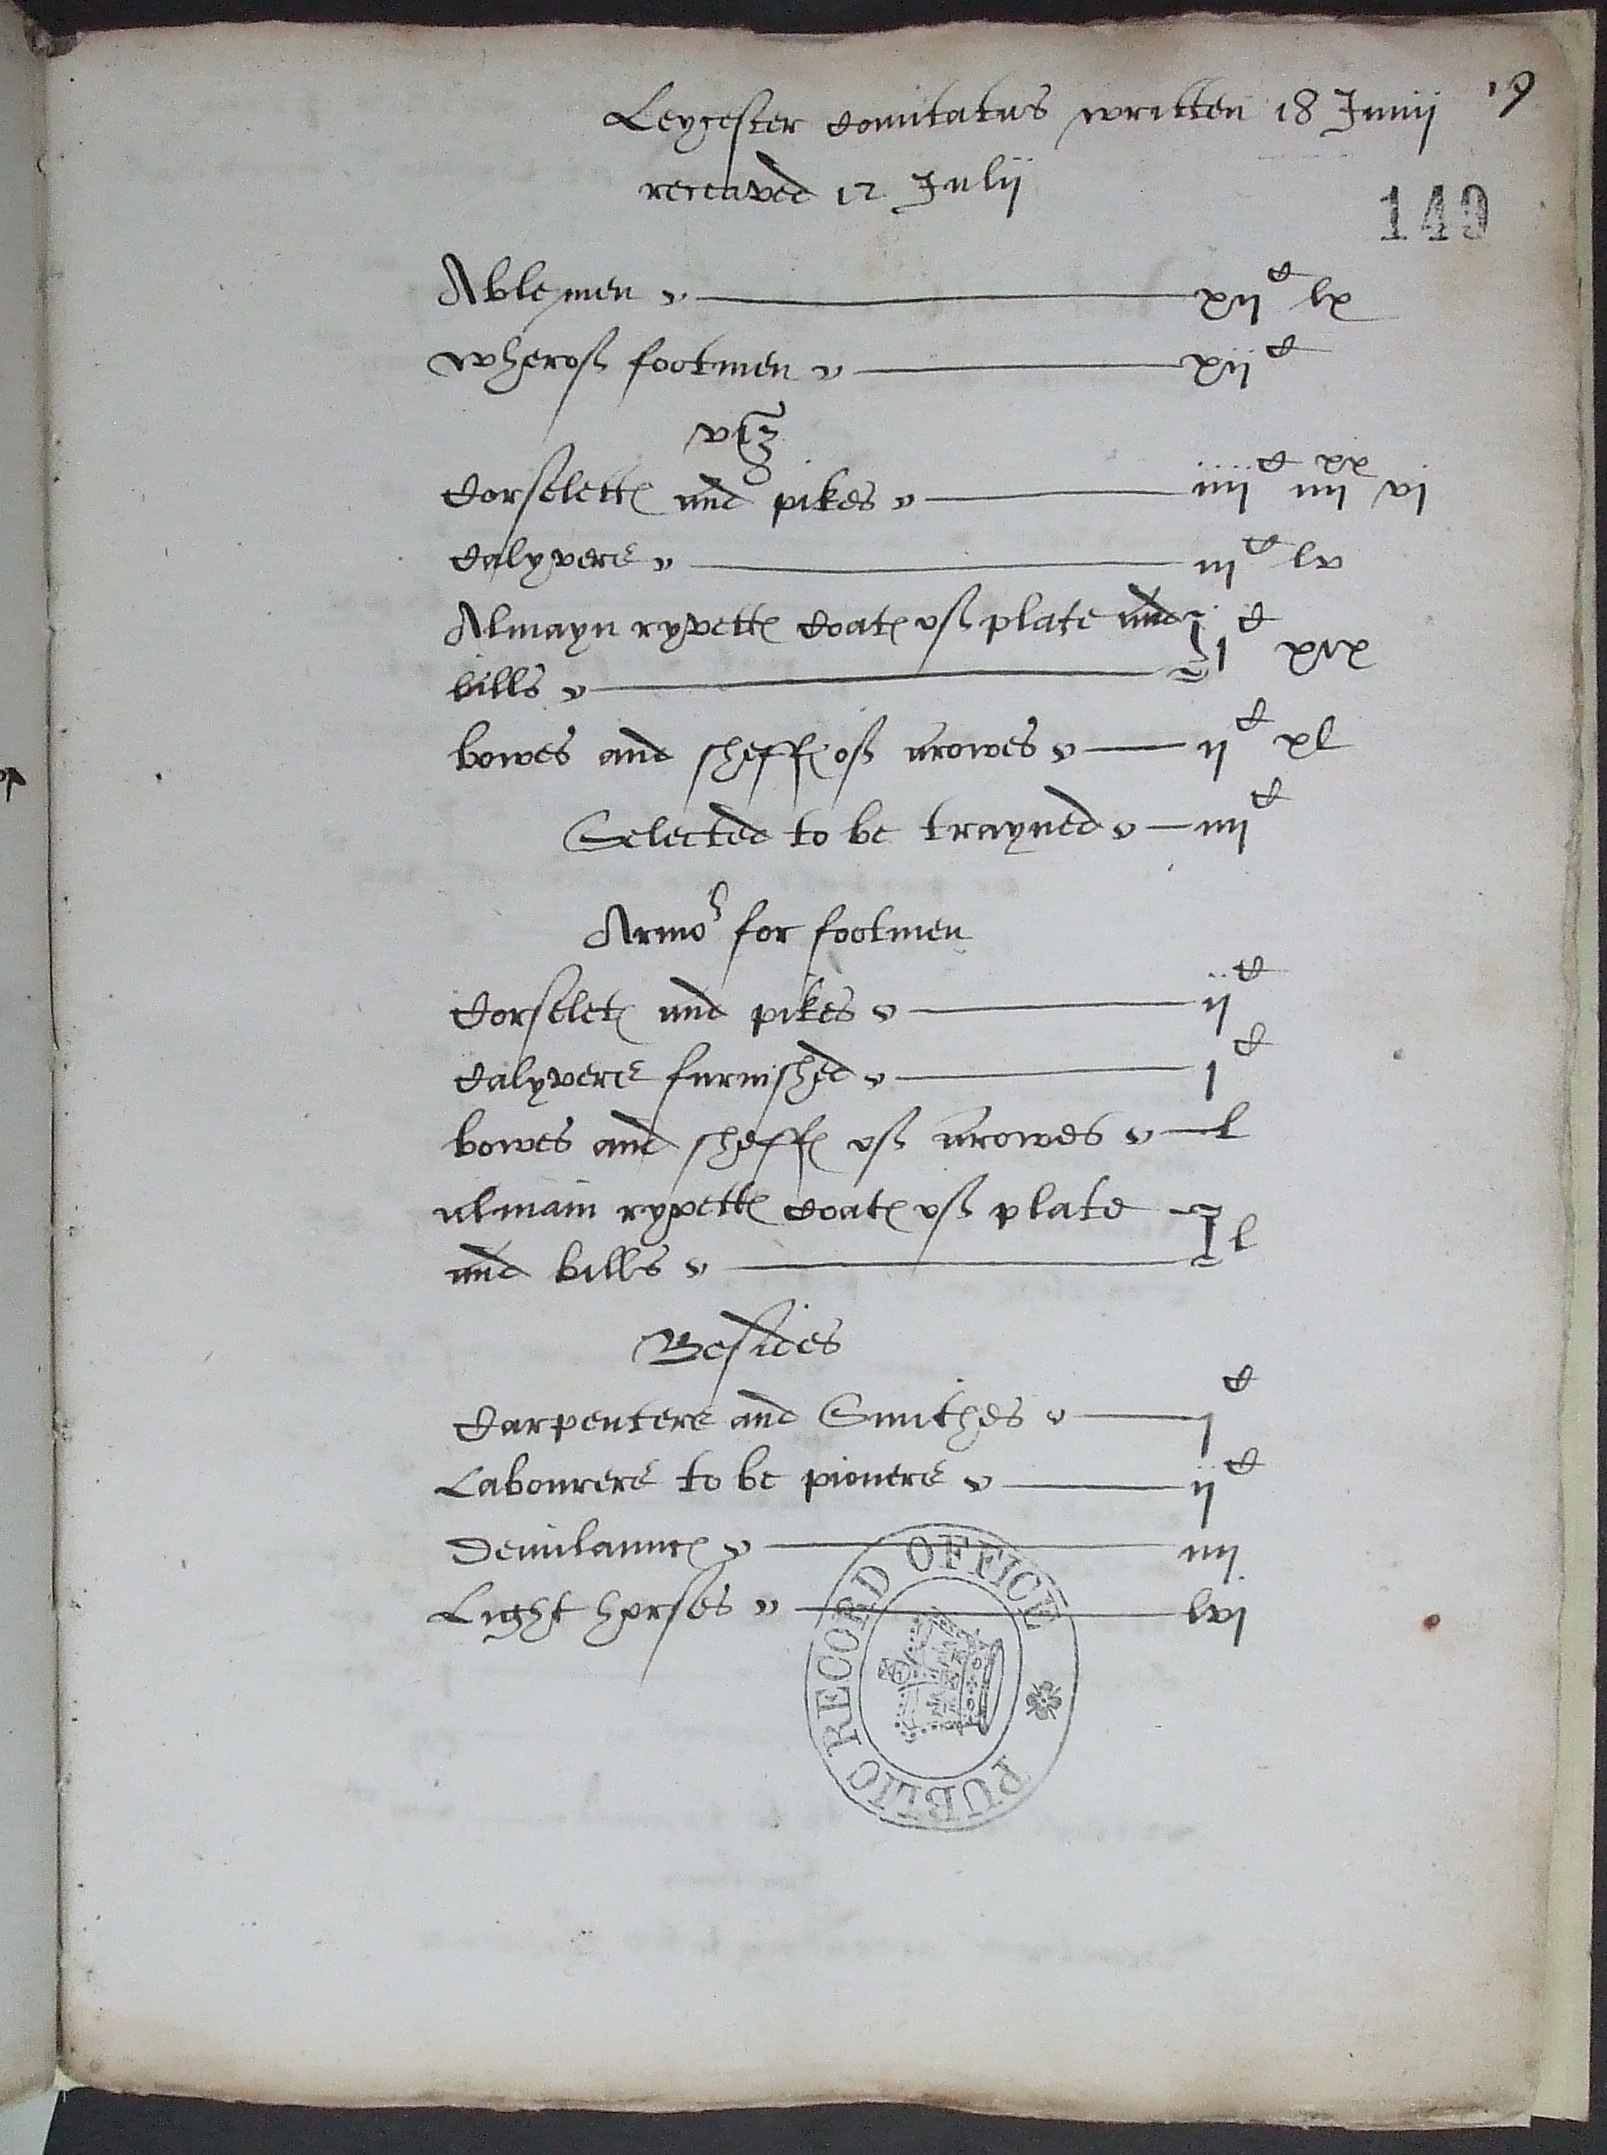 Leycester Comitatus written 18 Junij 19
receaved 12 Julij
140
Able men — xij^C lx
wherof footmen — xij^C
viz
Corseletts and pikes — iiij^C iiij^xx vj
Calyvers — iij^C lv
Almayn ryvetts Coats of plate and
bills — j^C xix
bowes and sheffs of arowes — ij^C xl
Selected to be trayned — iiij^C
Armo^r for footmen
Corselets and pikes — ij^C
Calyvers furnished — j^C
bowes and sheffs of arowes — l
almain ryvetts Coats of plate
and bills — l
Besides
Carpenters and Smithes — j^C
Labourers to be pioners — ij^C
Demilaunces — iiij
Light horses — lvj
PUBLIC RECORD OFFICE